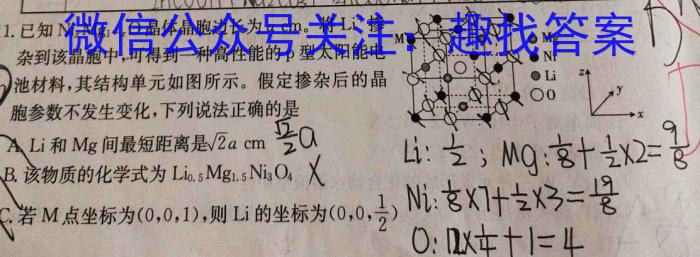 1. 已知 N 晶体晶胞边长为 a cm。将 Li 掺
杂到该晶胞中,可得到一种高性能的 p 型太阳能电
池材料,其结构单元如图所示。假定掺杂后的晶
胞参数不发生变化,下列说法正确的是
A. Li 和 Mg 间最短距离是√2a cm
√2/2 a
B. 该物质的化学式为 Li₀.₅Mg₁.₅Ni₃O₄ X
C. 若 M 点坐标为(0,0,1),则 Li 的坐标为(0,0,1/2)
微信公众号关注:趣找答案
M
Ni
Li
O
z
y
x
Li: 1/2 ; Mg: 1/8 + 1/2 X2 = 9/8
Ni: 1/8 X7 + 1/2 X3 = 19/8
O: 12X 1/4 + 1 = 4